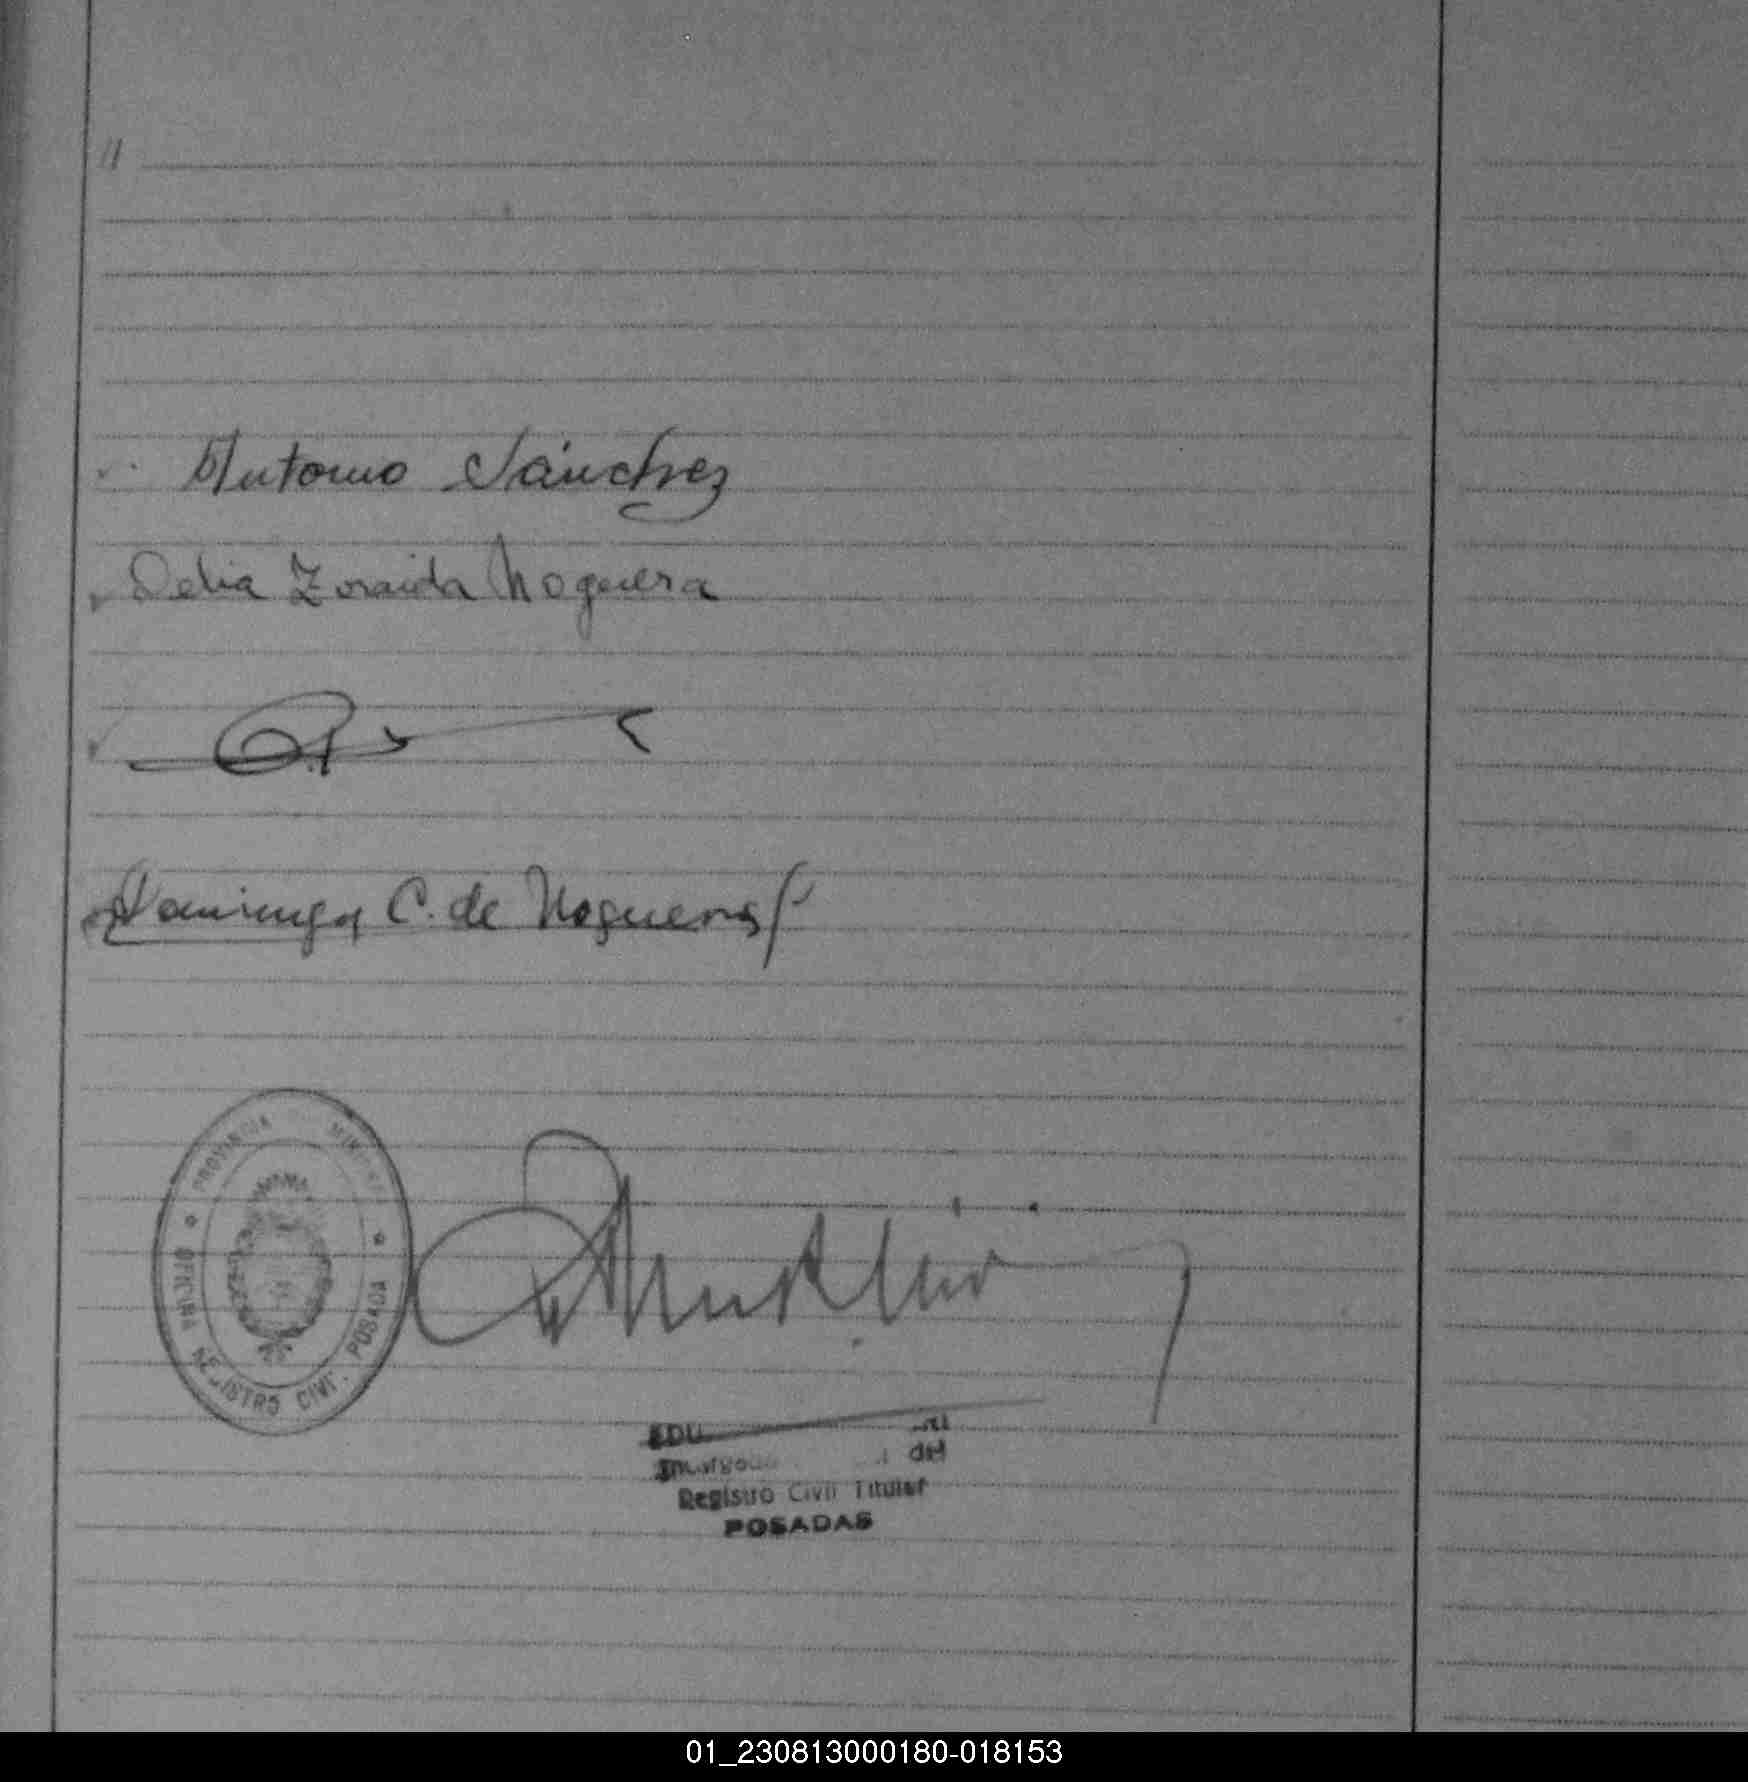 "
Antonio Sánchez
Delia Zoraida Noguera
Dominga C. de Noguera
PROVINCIA MISIONES
OFICINA REGISTRO CIVIL POSADAS
EDU
del
Registro Civil Titular
POSADAS
01_230813000180-018153